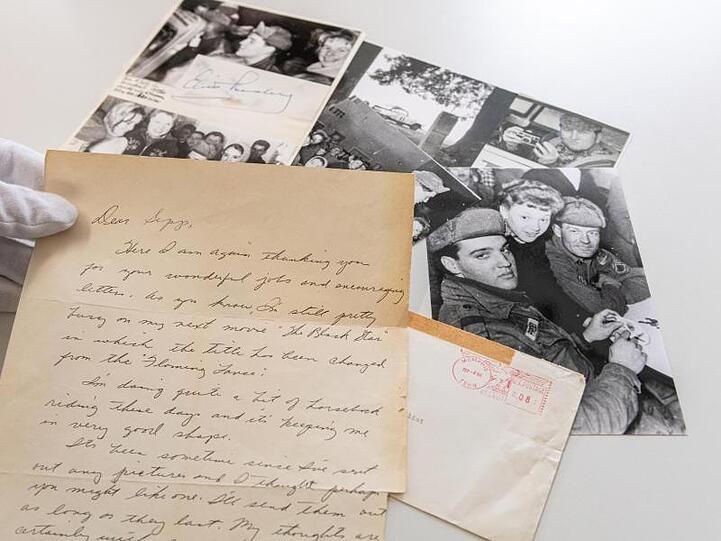 Elvis Presley
Dear Sepp,
Here I am again thanking you
for your wonderful jobs and encouraging
letters. As you know, I'm still pretty
busy on my next movie "The Black Star"
in which the title has been changed
from the "Flaming Lance".
I'm doing quite a bit of horseback
riding these days and it's keeping me
in very good shape.
It's been sometime since I've sent
out any pictures and I thought perhaps
you might like one. I'll send them out
as long as they last. My thoughts are
certainly with
MEMPHIS
TENN